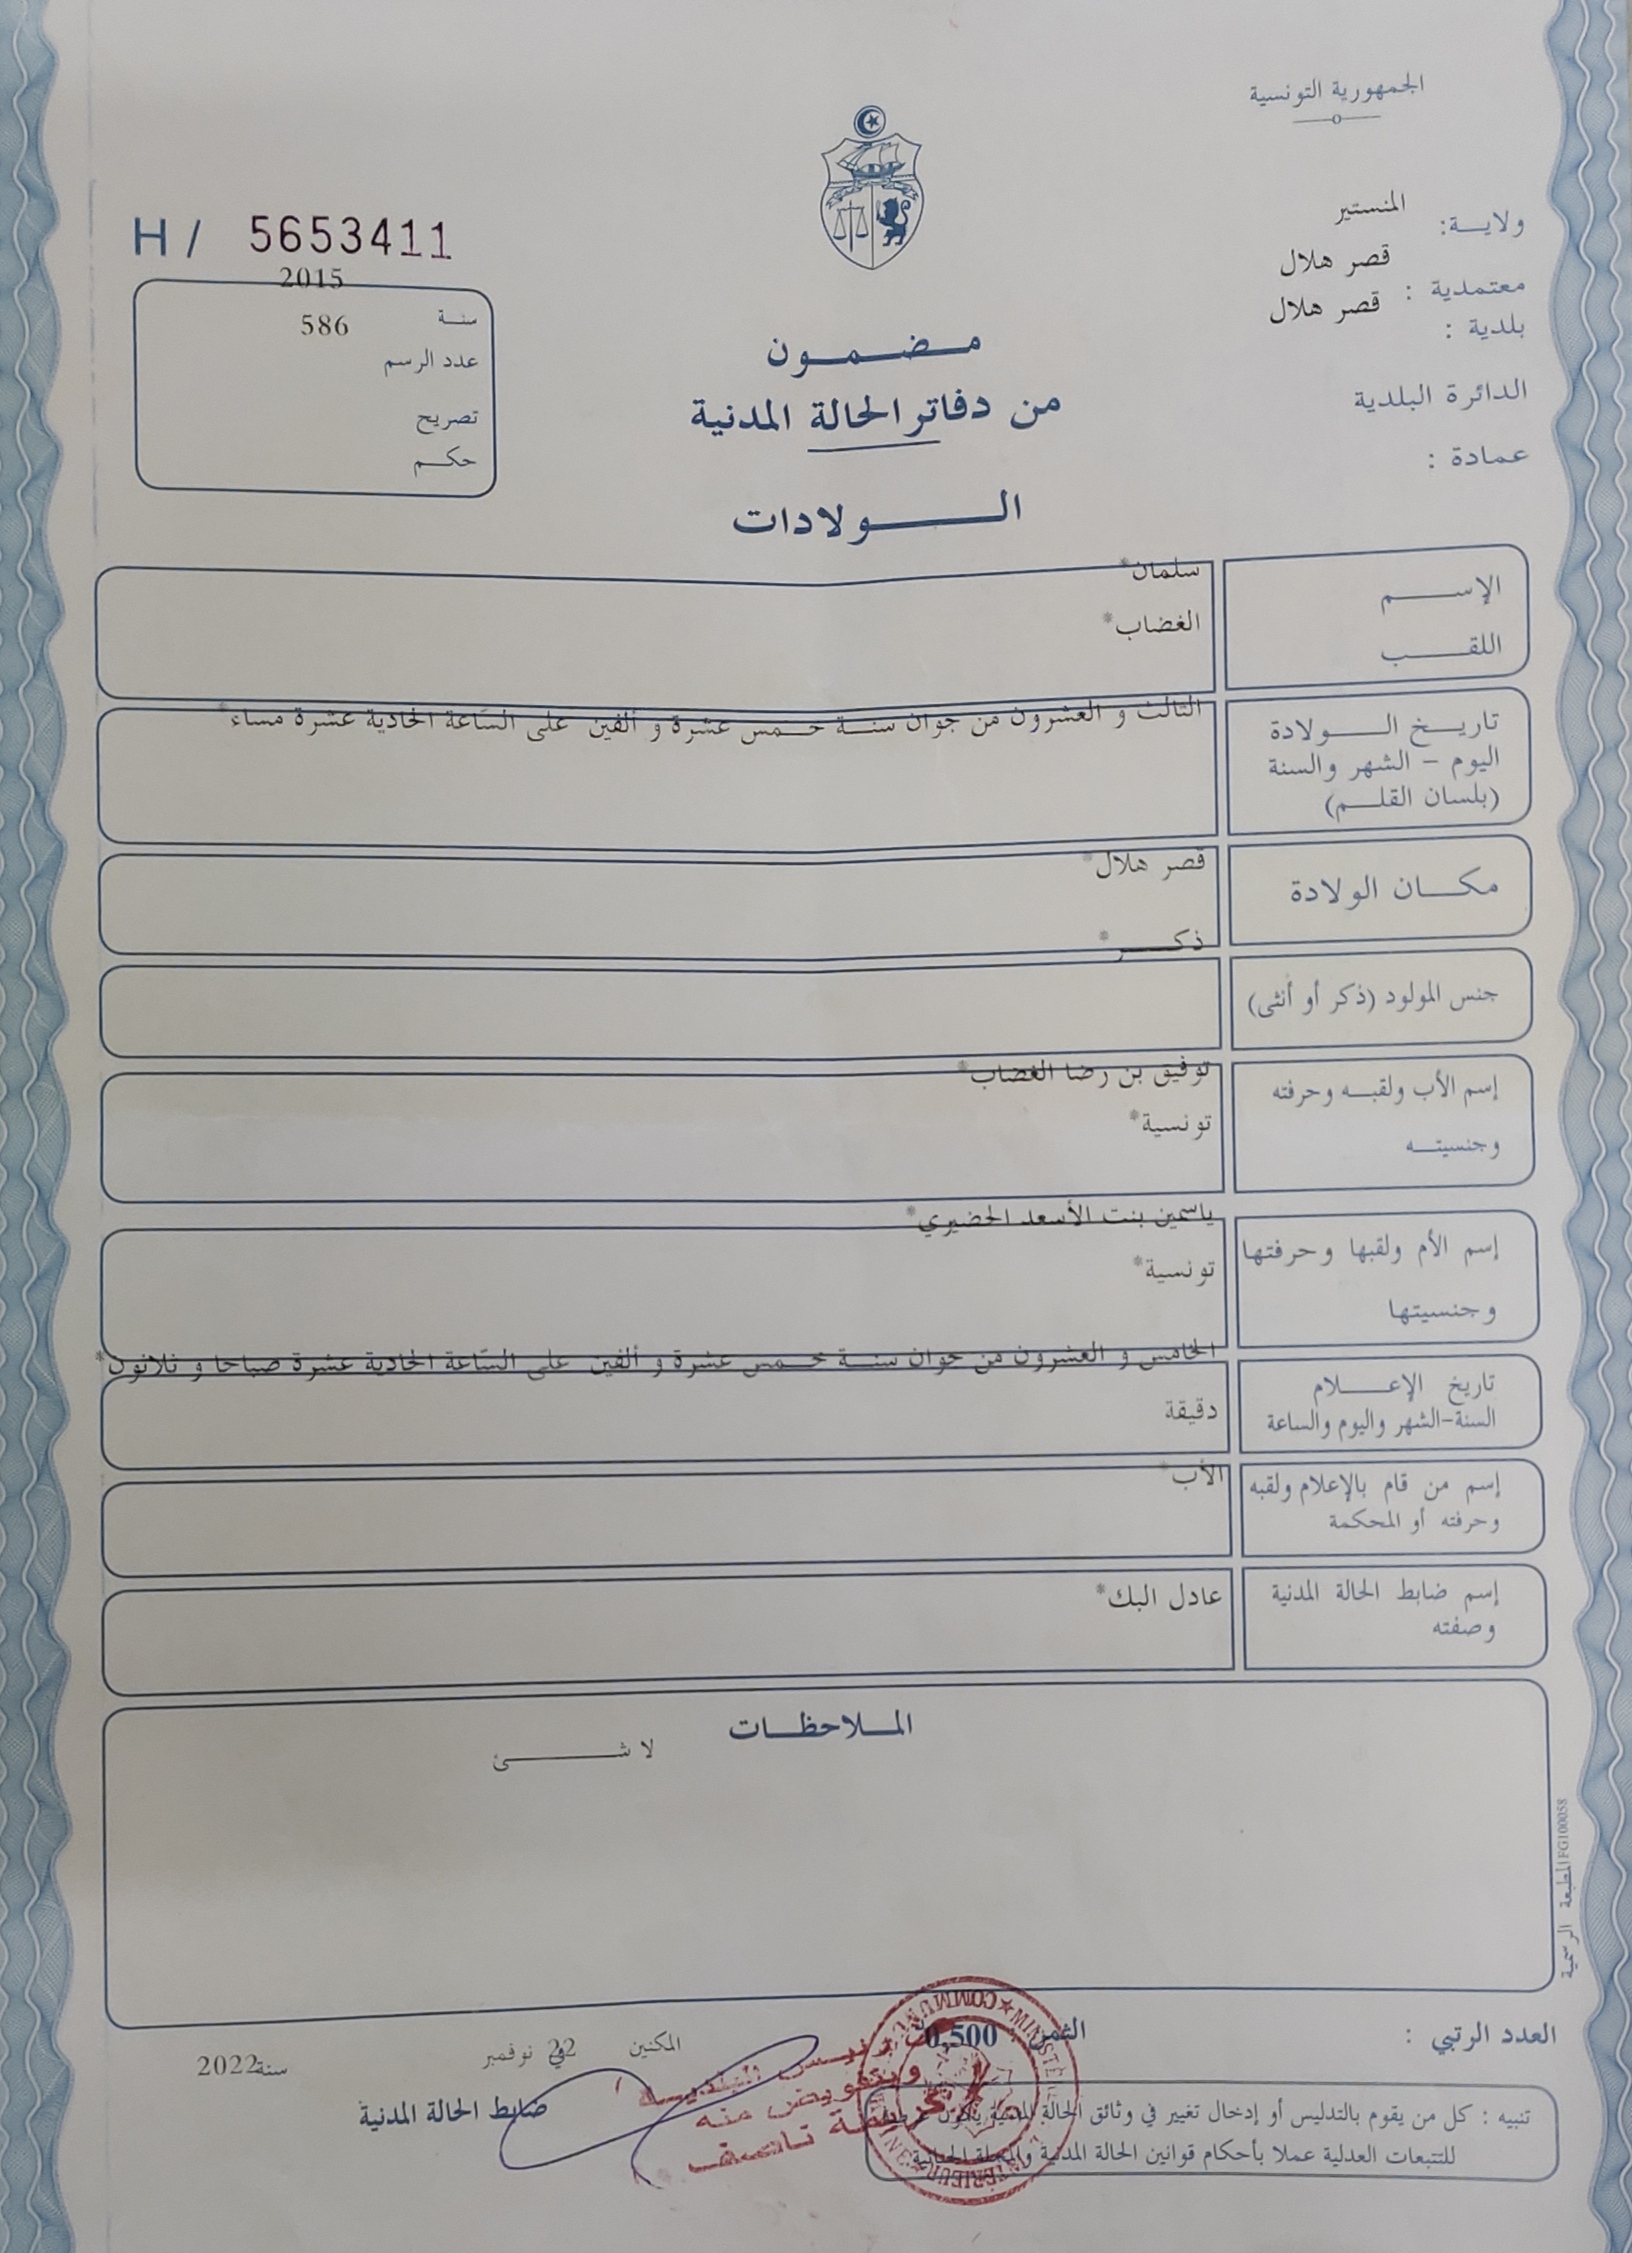 الجمهورية التونسية
ولايــة: المنستير
معتمدية : قصر هلال
بلدية : قصر هلال
الدائرة البلدية
عمادة :
H / 5653411
سنـة 2015
عدد الرسم 586
تصريح
حكـم
مـضـمـون
من دفاتر الحالة المدنية
الـولادات
الإســم سلمان*
اللقــب الغضاب*
تاريـخ الــولادة
اليوم – الشهر والسنة
(بلسان القلـم)
الثالث و العشرون من جوان سنـة خـمس عشرة و ألفين على السّاعة الحادية عشرة مساء*
مكـان الولادة
قصر هلال*
ذكــر*
جنس المولود (ذكر أو أنثى)
إسم الأب ولقبـه وحرفته
وجنسيتـه
توفيق بن رضا الغضاب*
تونسية*
إسم الأم ولقبها وحرفتها
وجنسيتها
ياسمين بنت الأسعد الخضيري*
تونسية*
تاريخ الإعـلام
السنة-الشهر واليوم والساعة
الخامس و العشرون من جوان سنـة خـمس عشرة و ألفين على السّاعة الحادية عشرة صباحا و ثلاثون*
دقيقة
إسم من قام بالإعلام ولقبه
وحرفته أو المحكمة
الأب*
إسم ضابط الحالة المدنية
وصفته
عادل البك*
المـلاحظـات
لا شــئ
المطبعة الرسمية FG100058
العدد الرتبي :
الثمن 0,500
المكنين في 22 نوفمبر سنة 2022
ضابط الحالة المدنية
رئيـس البلديـة
وبتفويض منه
ناصف
MINISTÈRE
INTERIEUR
COMMUNE
تنبيه : كل من يقوم بالتدليس أو إدخال تغيير في وثائق الحالة المدنية يكون عرضة
للتتبعات العدلية عملا بأحكام قوانين الحالة المدنية والمجلة الجنائية